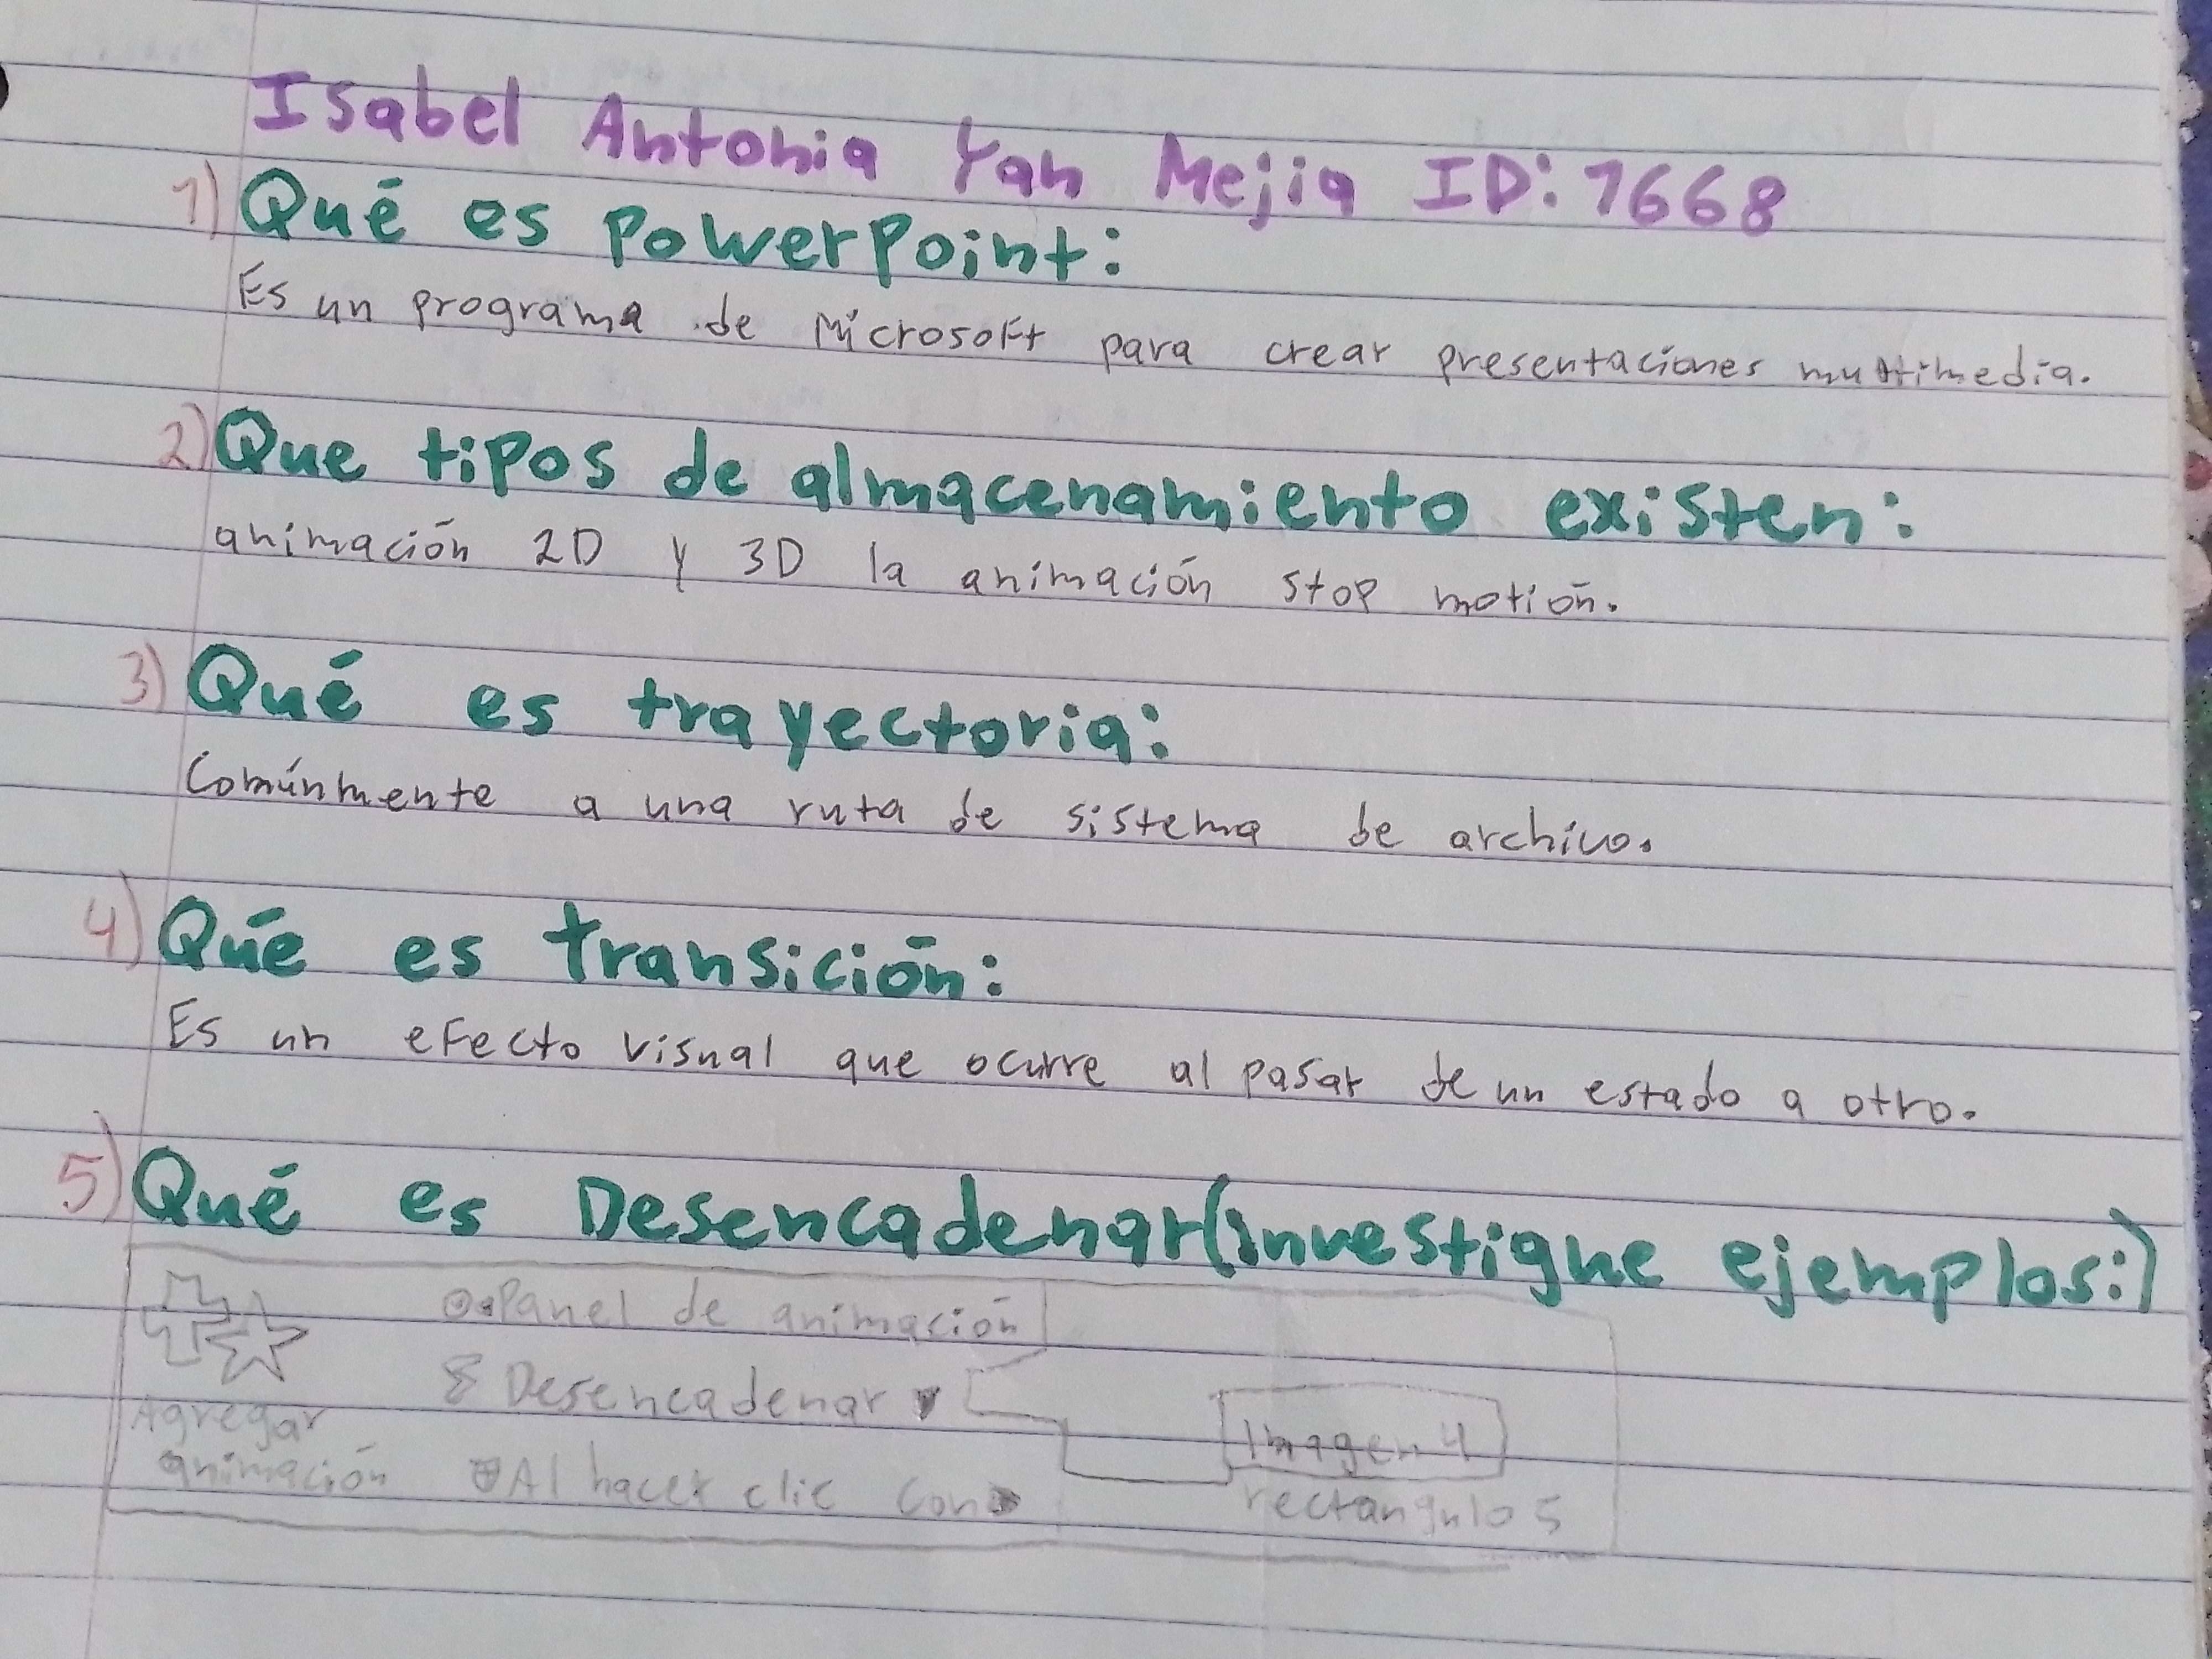 Isabel Antonia Yan Mejia ID: 7668
1) Qué es PowerPoint:
Es un programa de Microsoft para crear presentaciones multimedia.
2) Que tipos de almacenamiento existen:
animación 2D y 3D la animación stop motión.
3) Qué es trayectoria:
Comúnmente a una ruta de sistema de archivo.
4) Qué es transición:
Es un efecto visual que ocurre al pasar de un estado a otro.
5) Qué es Desencadenar (investigue ejemplos:)
Panel de animación
Desencadenar
Agregar
animación
Al hacer clic con
Imagen 4
rectangulo 5